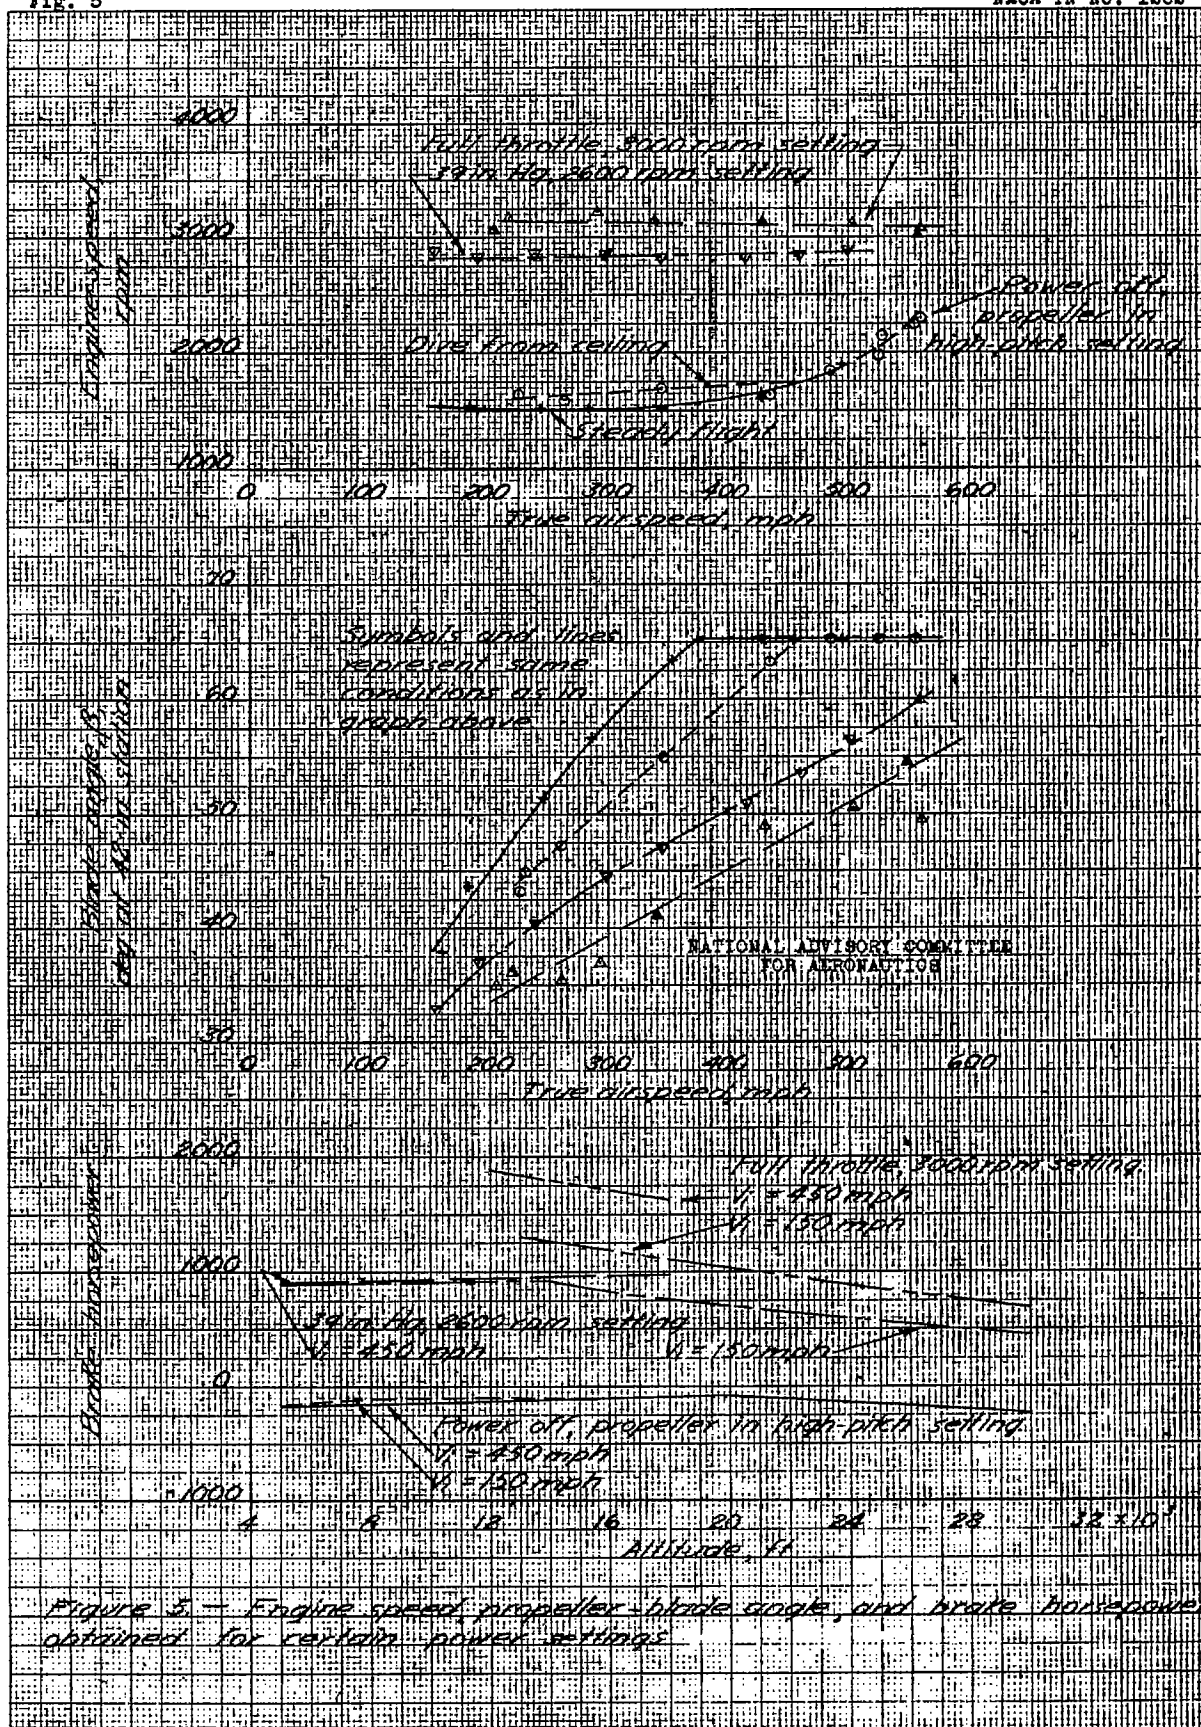 Fig. 5
NACA TN No.
4000
3000
2000
1000
Engine speed,
rpm
Full throttle, 3000 rpm setting
39 in Hg, 2600 rpm setting
Power off,
propeller in
high-pitch setting
Dive from ceiling
Steady flight
0 100 200 300 400 500 600
True airspeed, mph
70
60
50
40
30
Blade angle, β,
deg at 42-in station
Symbols and lines
represent same
conditions as in
graph above
NATIONAL ADVISORY COMMITTEE
FOR AERONAUTICS
0 100 200 300 400 500 600
True airspeed, mph
2000
1000
0
-1000
Brake horsepower
Full throttle, 3000 rpm setting
Vi = 450 mph
Vi = 150 mph
39 in Hg, 2600 rpm setting
Vi = 450 mph
Vi = 150 mph
Power off, propeller in high-pitch setting
Vi = 450 mph
Vi = 150 mph
4 8 12 16 20 24 28 32 × 10³
Altitude, ft
Figure 5. — Engine speed, propeller-blade angle, and brake horsepowe
obtained for certain power settings